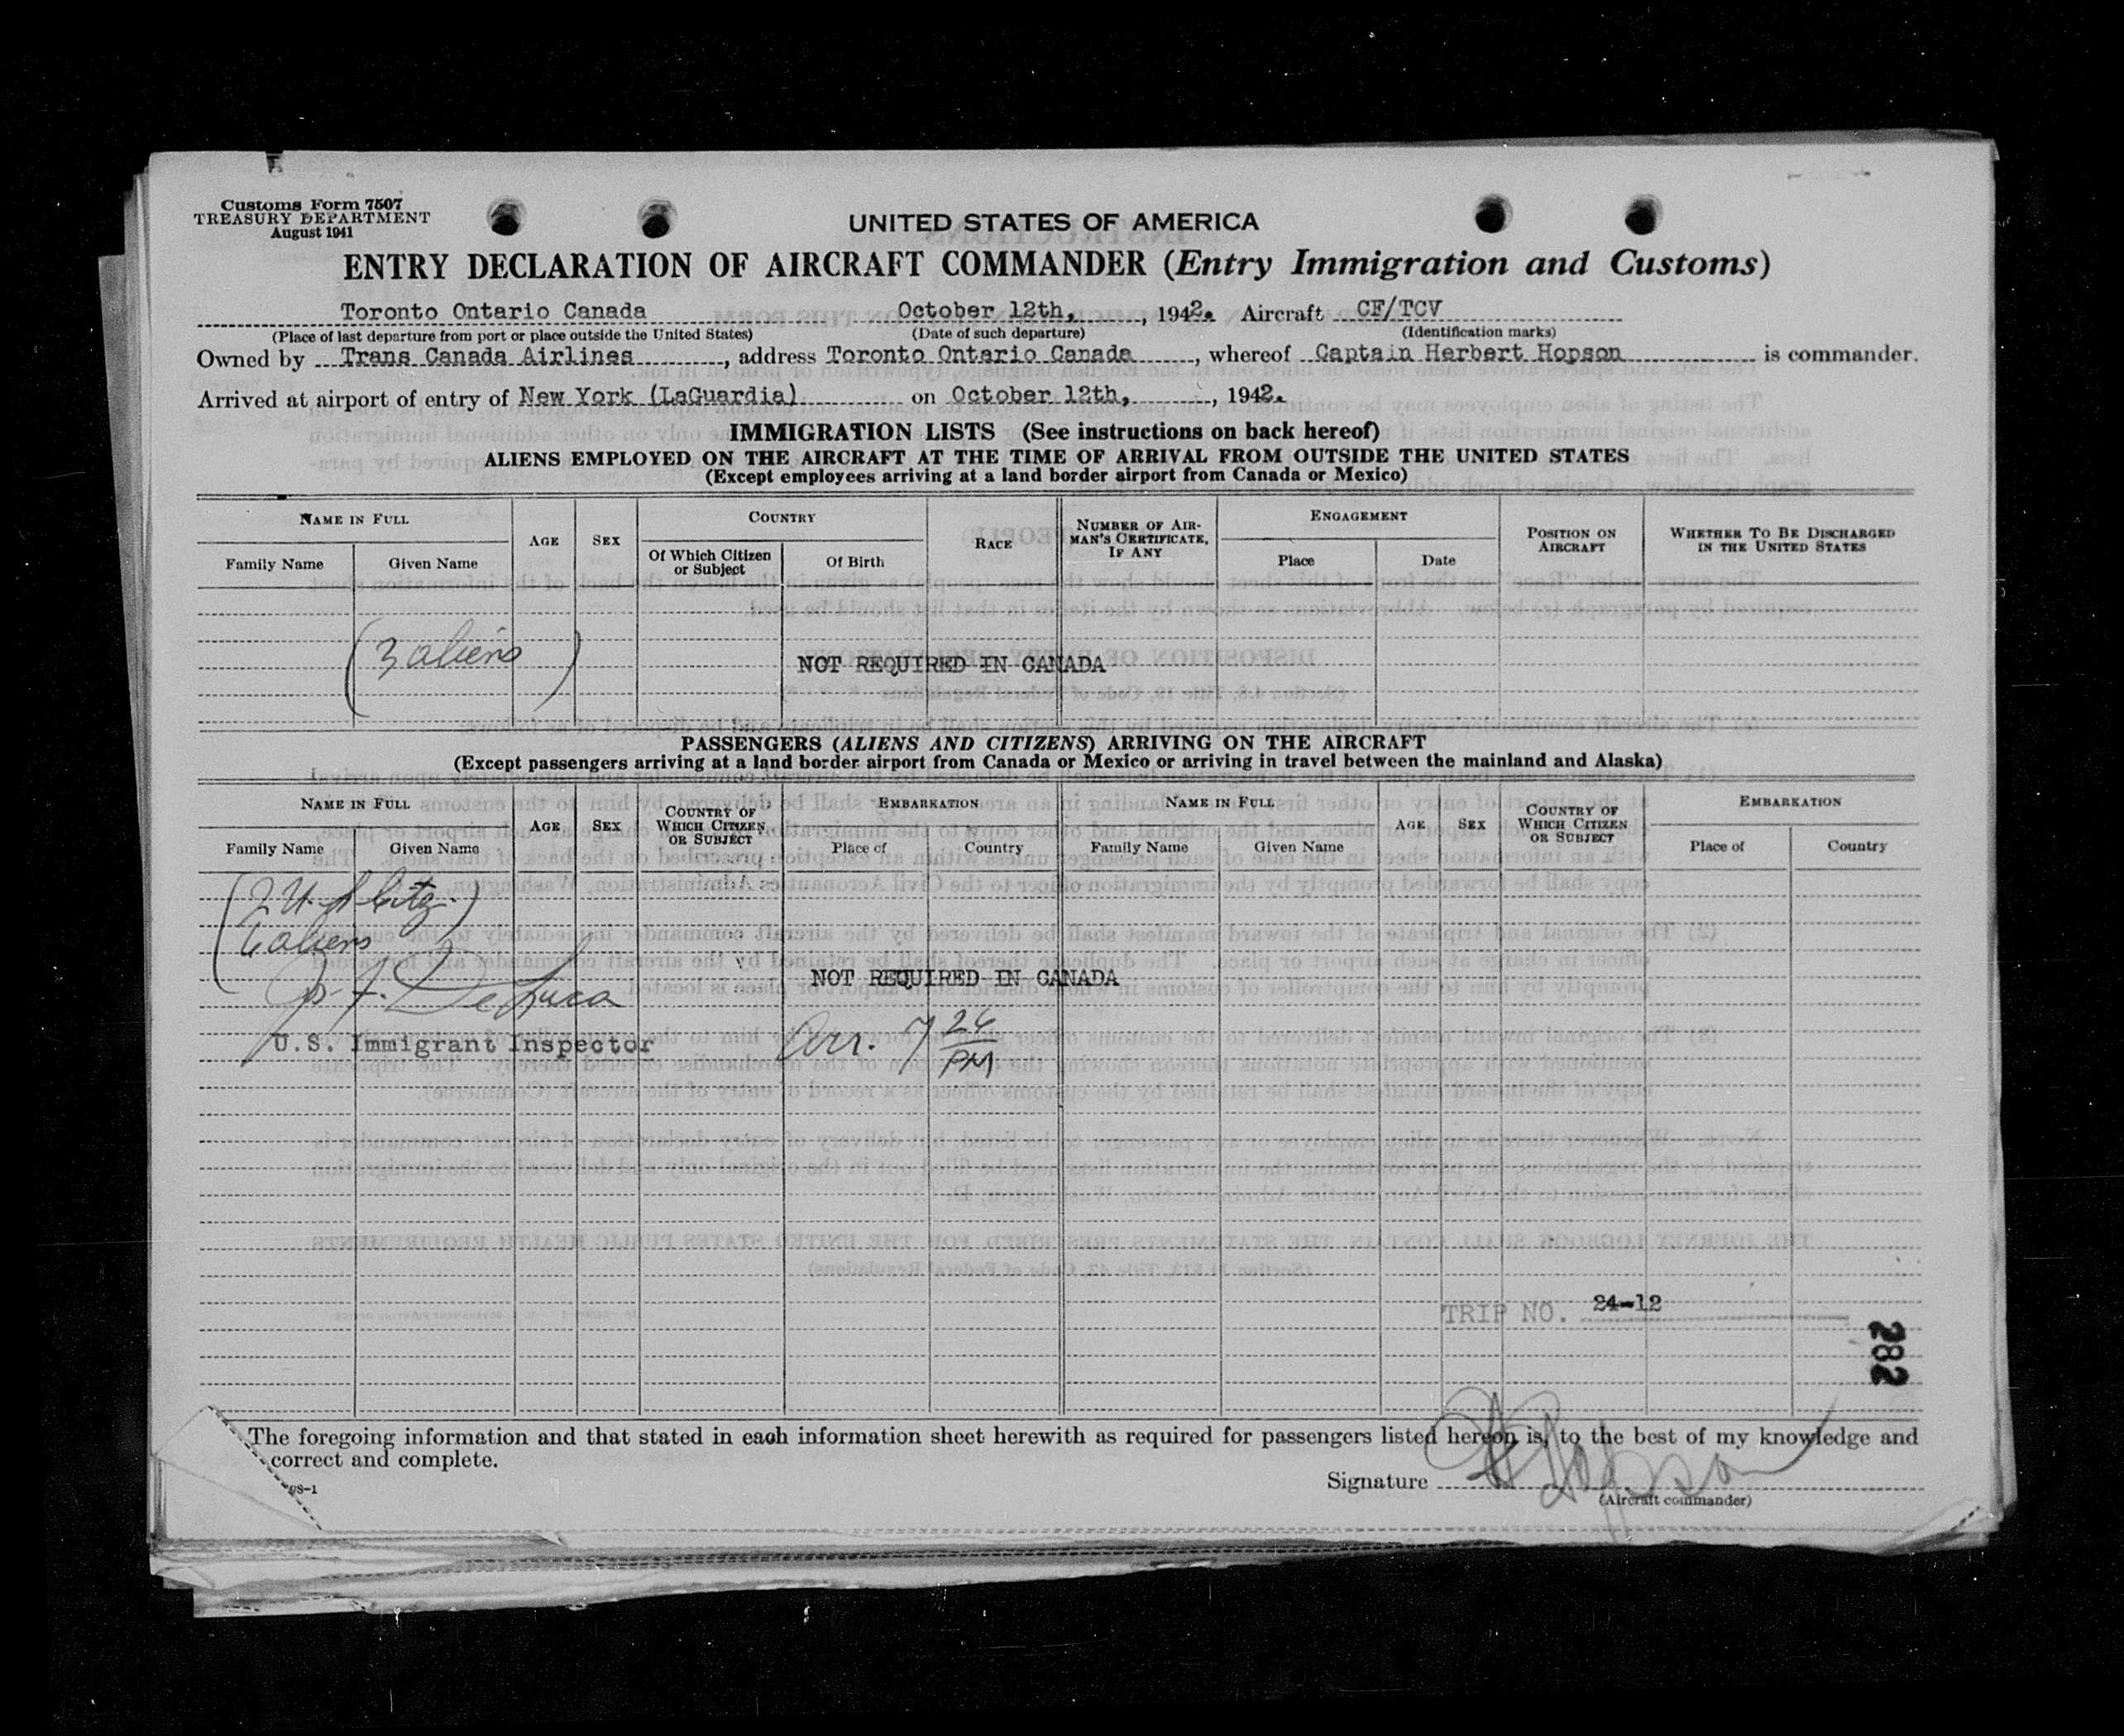 Customs Form 7507
TREASURY DEPARTMENT
August 1941
UNITED STATES OF AMERICA
ENTRY DECLARATION OF AIRCRAFT COMMANDER (Entry Immigration and Customs)
Toronto Ontario Canada October 12th, , 1942. Aircraft CF/TCV
(Place of last departure from port or place outside the United States) (Date of such departure) (Identification marks)
Owned by Trans Canada Airlines , address Toronto Ontario Canada , whereof Captain Herbert Hopson is commander.
Arrived at airport of entry of New York (LaGuardia) on October 12th, , 1942.
IMMIGRATION LISTS (See instructions on back hereof)
ALIENS EMPLOYED ON THE AIRCRAFT AT THE TIME OF ARRIVAL FROM OUTSIDE THE UNITED STATES
(Except employees arriving at a land border airport from Canada or Mexico)
NAME IN FULL AGE SEX COUNTRY RACE NUMBER OF AIR-MAN'S CERTIFICATE, IF ANY ENGAGEMENT POSITION ON AIRCRAFT WHETHER TO BE DISCHARGED IN THE UNITED STATES
Family Name Given Name Of Which Citizen or Subject Of Birth Place Date
(3 aliens)
NOT REQUIRED IN CANADA
PASSENGERS (ALIENS AND CITIZENS) ARRIVING ON THE AIRCRAFT
(Except passengers arriving at a land border airport from Canada or Mexico or arriving in travel between the mainland and Alaska)
NAME IN FULL AGE SEX COUNTRY OF WHICH CITIZEN OR SUBJECT EMBARKATION NAME IN FULL AGE SEX COUNTRY OF WHICH CITIZEN OR SUBJECT EMBARKATION
Family Name Given Name Place of Country Family Name Given Name Place of Country
(2 U.S. Citz.)
aliens
DeLuca
NOT REQUIRED IN CANADA
U.S. Immigrant Inspector
Arr. 7 26 PM
TRIP NO. 24-12
282
The foregoing information and that stated in each information sheet herewith as required for passengers listed hereon is, to the best of my knowledge and
correct and complete.
98-1
Signature H Hopson
(Aircraft commander)